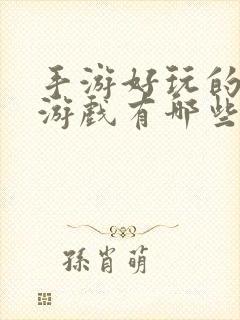 手游好玩的
游戏有哪些
孫肖萌